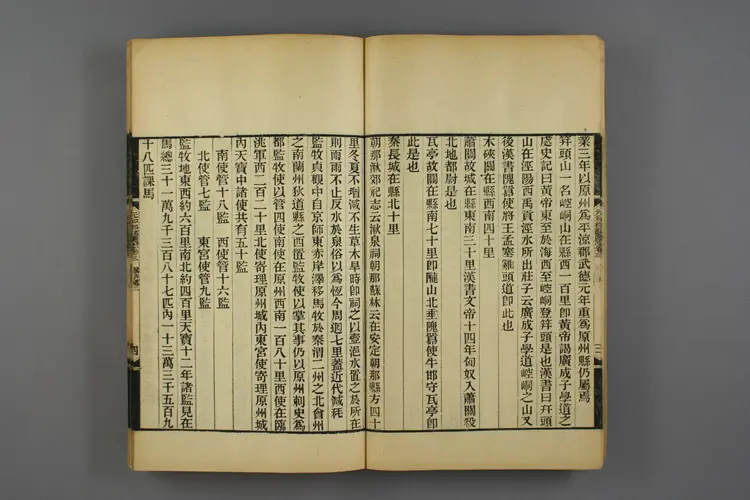 業三年以原州爲平涼郡武德元年重爲原州縣仍屬焉
笄頭山一名崆峒山在縣西一百里卽黃帝謁廣成子學道之
處史記曰黃帝東至於海西至崆峒登笄頭是也漢書曰幵頭
山在涇陽西禹貢涇水所出莊子云廣成子學道崆峒之山又
後漢書隗囂使將王孟塞雞頭道卽此也
木峽關在縣西南四十里
蕭關故城在縣東南三十里漢書文帝十四年匈奴入蕭關殺
北地都尉是也
瓦亭故關在縣南七十里卽隴山北垂隗囂使牛邯守瓦亭卽
此是也
秦長城在縣北十里
朝那湫郊祀志云湫泉祠朝那蘇林云在安定朝那縣方四十
里冬夏不增減不生草木旱時卽祠之以壺浥水置之於所在
則雨雨不止反水於泉俗以爲恆今周迴七里蓋近代減耗
監牧貞觀中自京師東赤岸澤移馬牧於秦渭二州之北會州
之南蘭州狄道縣之西置監牧使以掌其事仍以原州刺史爲
都監牧使以管四使南使在原州西南一百八十里西使在臨
洮軍西二百二十里北使寄理原州城內東宮使寄理原州城
內天寶中諸使共有五十監
南使管十八監　西使管十六監
北使管七監　東宮使管九監
監牧地東西約六百里南北約四百里天寶十二年諸監見在
馬總三十一萬九千三百八十七匹內一十三萬三千五百九
十八匹課馬